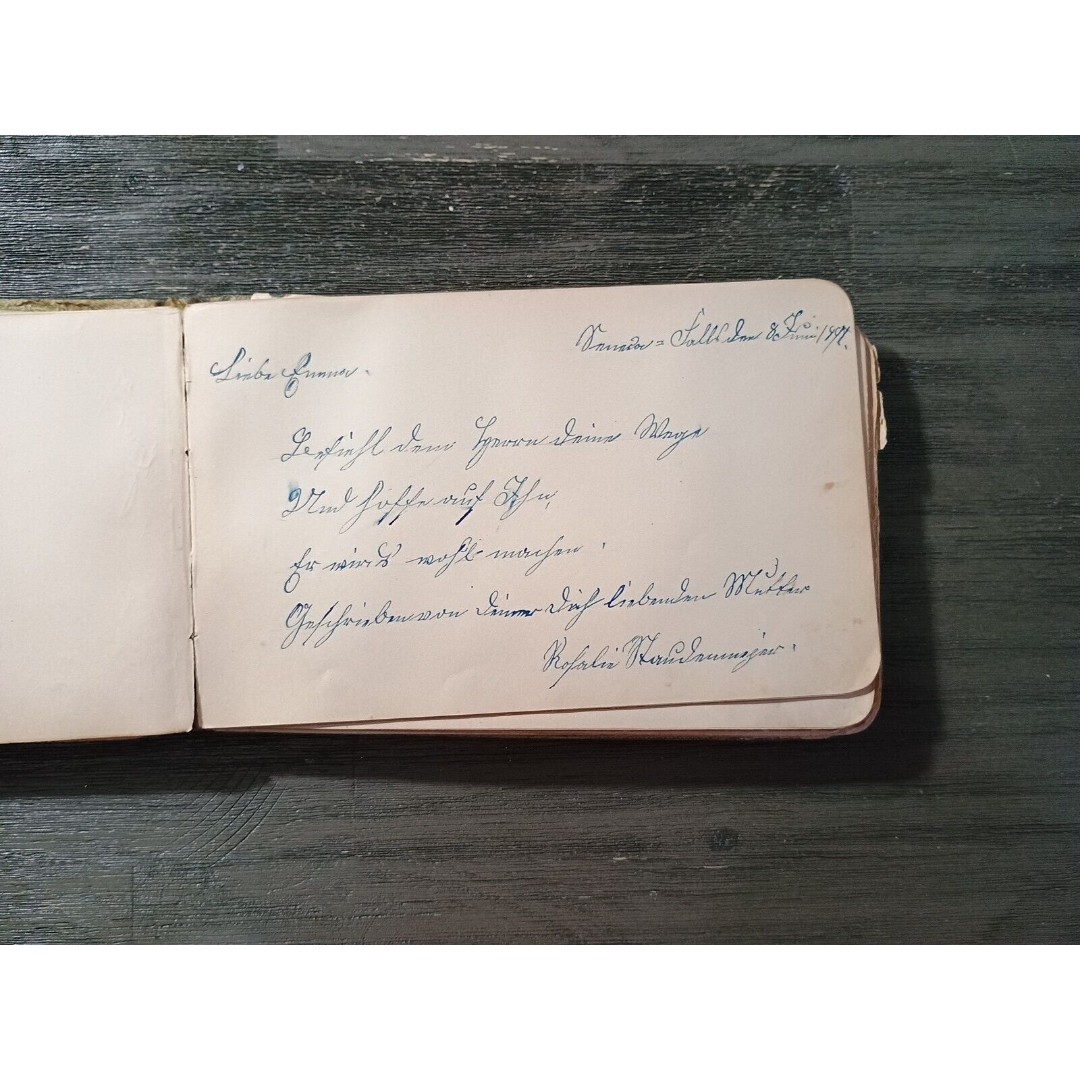 Seneca=Falls den 8 Juni 1897.
Liebe Emma.
Befiehl dem Herrn deine Wege
Und hoffe auf Ihn,
Er wirds wohl machen.
Geschrieben von deiner dich liebenden Mutter
Rosalie Staudenmajer.